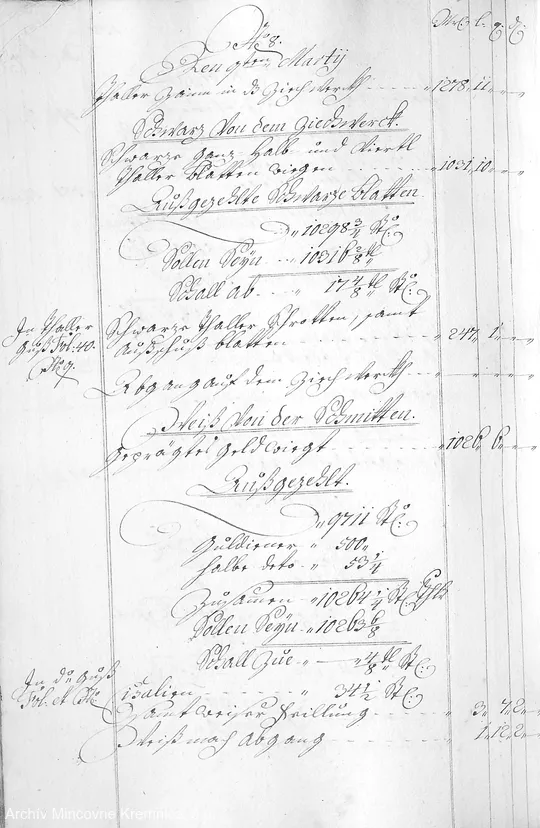 Mr: l. q. d.
No 8.
Den 9ten Martij
Thaller Zainn in dz Ziechwerch 1278, 11,
Schwarz Von dem Ziechwerck.
Schwarze Ganz Halb und Viertl
Thaller blatten wiegen 1031, 10,
Außgezehlte Schwarze blatten
10298 3/4 St:
Sollen Seyn 10316 2/8 tl
Schall ab 17 4/8 tl St:
In Thaller
Guß Fol: 40.
No 9.
Schwarze Thaller Schrotten, samt
Außschuß blatten 247, 1,
Abgang auf dem Ziechwerckh
Weiß Von der Schmitten.
Geprägtes Geld wiegt 1026, 6,
Außgezehlt.
9711 St:
Guldiener 500
halbe deto 53 1/4
Zusamen 10264 1/4 St: Thlr
Sollen Seyn 10263 6/8
Schall Zue 4/8 tl St:
In du Guß
Fol: et No
Cisalien 34 1/2 St:
Samt weiser Feillung 3, 7, 2,
Weiß mach Abgang 1, 12, 2,
Archív Mincovne Kremnica